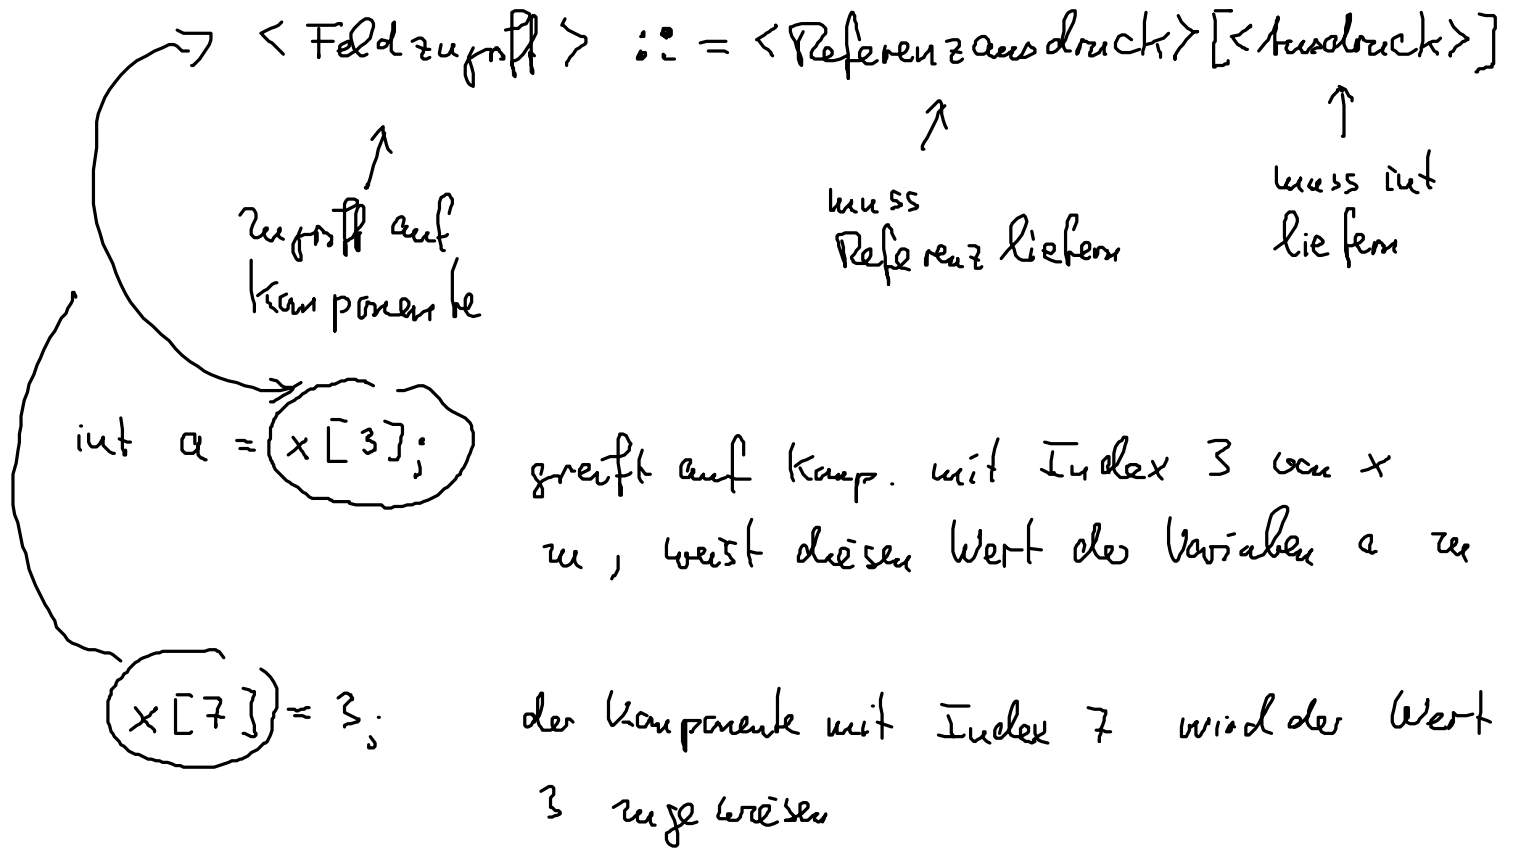 <Feldzugriff> ::= <Referenzausdruck>[<Ausdruck>]
Zugriff auf
Komponente
muss
Referenz liefern
muss int
liefern
int a = x[3];
greift auf Komp. mit Index 3 von x
zu, weist diesen Wert der Variablen a zu
x[7] = 3;
der Komponente mit Index 7 wird der Wert
3 zugewiesen